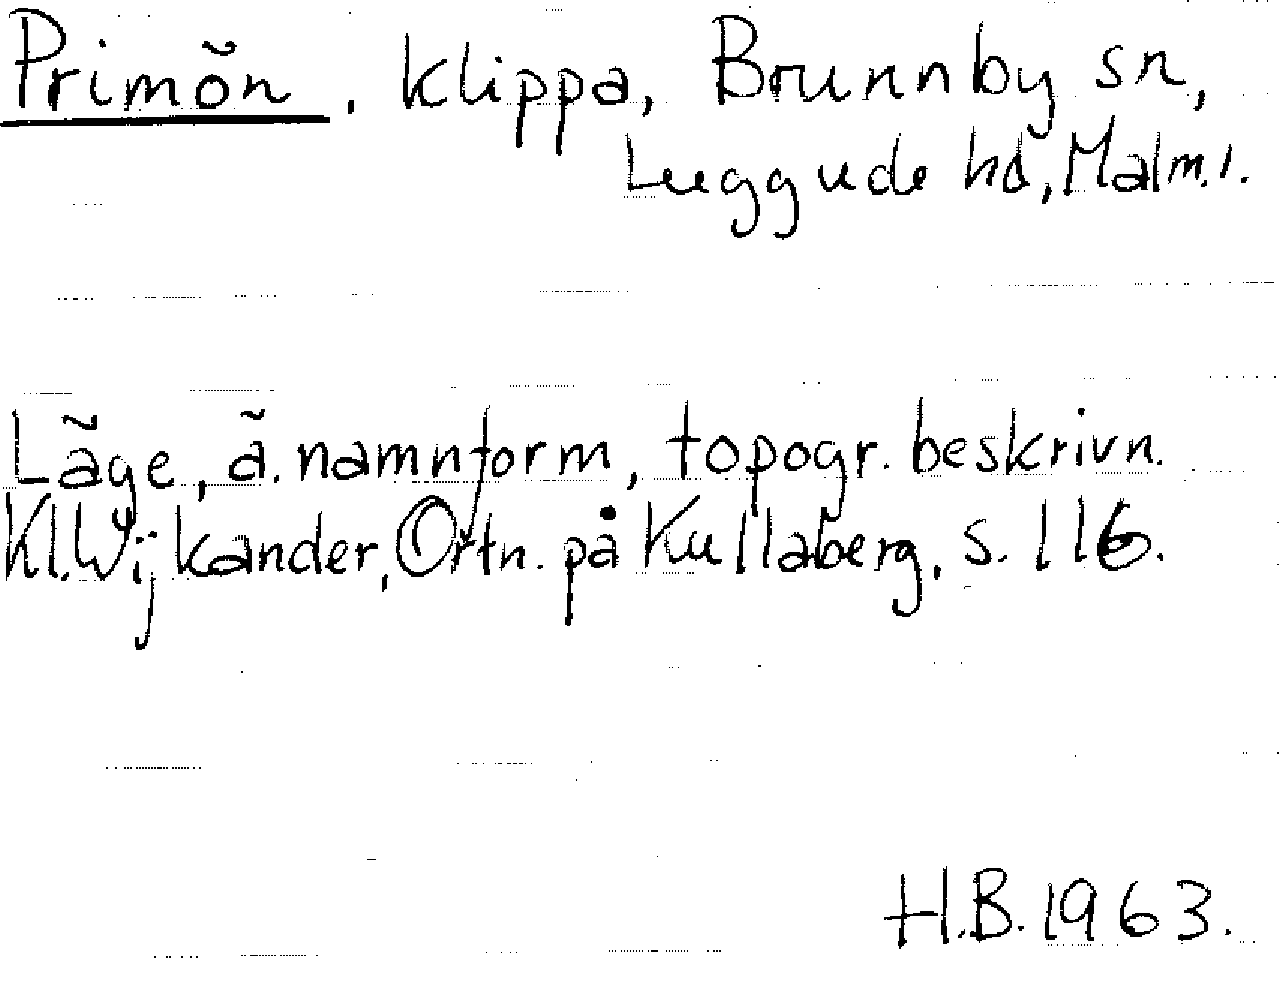 Primön. Klippa, Brunnby sn,
Luggude hd, Malm.l.
Läge, ä. namnform, topogr. beskrivn.
Kl.Wijkander, Ortn. på Kullaberg, s. 116.
H.B. 1963.